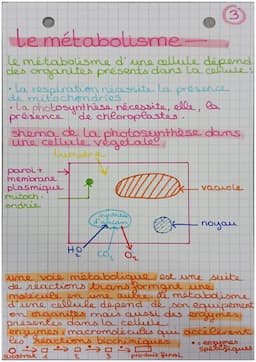 3
Le métabolisme
Le métabolisme d'une cellule dépend
des organites présents dans la cellule:
• la respiration nécessite la présence
de mitochondries
• la photosynthèse nécessite, elle, la
présence de chloroplastes.
shema de la photosynthèse dans
une cellule végétale:
lumière
paroi +
membrane
plasmique
mitoch-
ondrie
vacuole
noyau
H2O
CO2
O2
une voie métabolique est une suite
de réactions transformant une
molécule en une autre. le métabolisme
d'une cellule dépend de son équipement
en organites mais aussi des enzymes
présentes dans la cellule.
enzymes: macromolécules qui accélèrent
les réactions biochimiques.
• enzymes
spécifiques
produit final